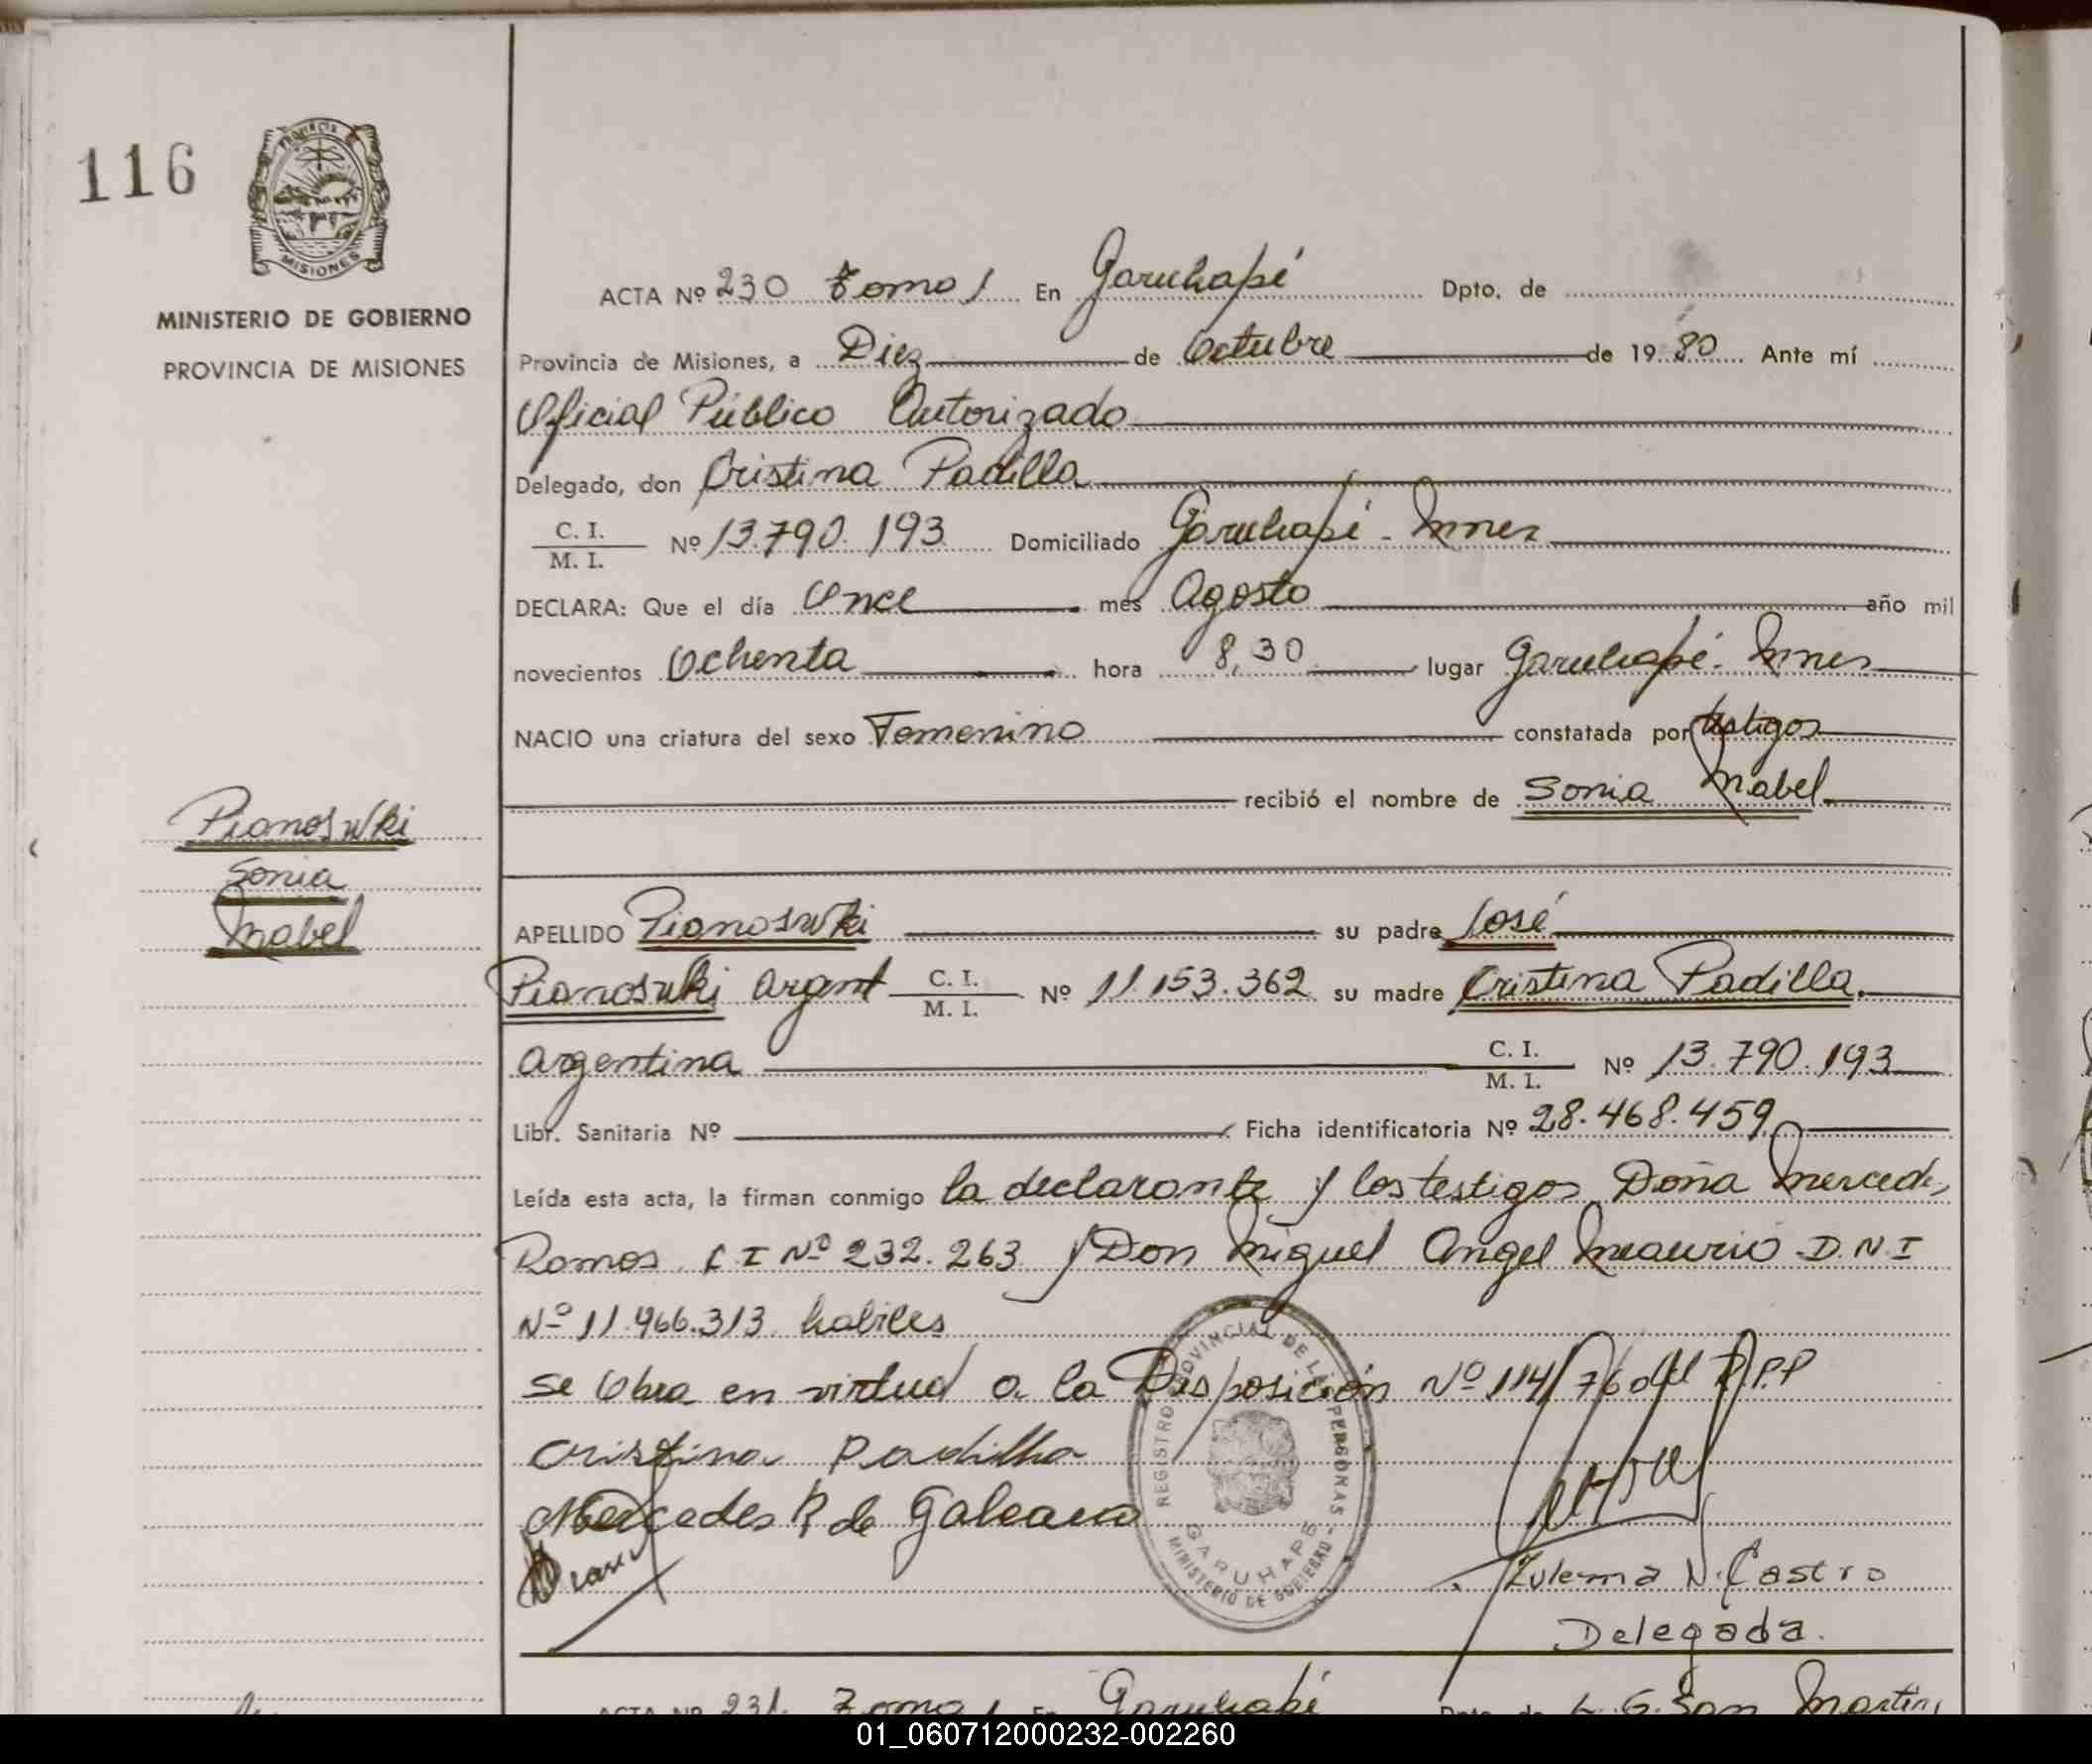 116
PROVINCIA
MISIONES
MINISTERIO DE GOBIERNO
PROVINCIA DE MISIONES
ACTA Nº 230 Tomo 1 En Garuhapé Dpto. de
Provincia de Misiones, a Diez de Octubre de 1980 Ante mí
Oficial Público Autorizado
Delegado, don Cristina Padilla
C. I.
M. I. Nº 13.790.193 Domiciliado Garuhapé - Mnes
DECLARA: Que el día Once mes Agosto año mil
novecientos Ochenta hora 8,30 lugar Garuhapé - Mnes
NACIO una criatura del sexo Femenino constatada por testigos
recibió el nombre de Sonia Mabel
Pianoswki
Sonia
Mabel
APELLIDO Pianoswki su padre José
Pianoswki Argent C. I. M. I. Nº 11.153.362 su madre Cristina Padilla.
Argentina C. I. M. I. Nº 13.790.193
Libr. Sanitaria Nº Ficha identificatoria Nº 28.468.459
Leída esta acta, la firman conmigo la declarante y los testigos Doña Mercedes
Ramos C I Nº 232.263 y Don Miguel Angel Maurio D.N.I
Nº 11.966.313 habiles
se Obra en virtud a la Disposición Nº 114/76 del R.P.P
Cristina Padilha
Mercedes R de Galeano
REGISTRO PROVINCIAL DE LAS PERSONAS - MINISTERIO DE GOBIERNO
GARUHAPE
Zulema N. Castro
Delegada.
ACTA Nº 231 Tomo 1 En Garuhapé Dpto. de L. G. San Martin
01_060712000232-002260